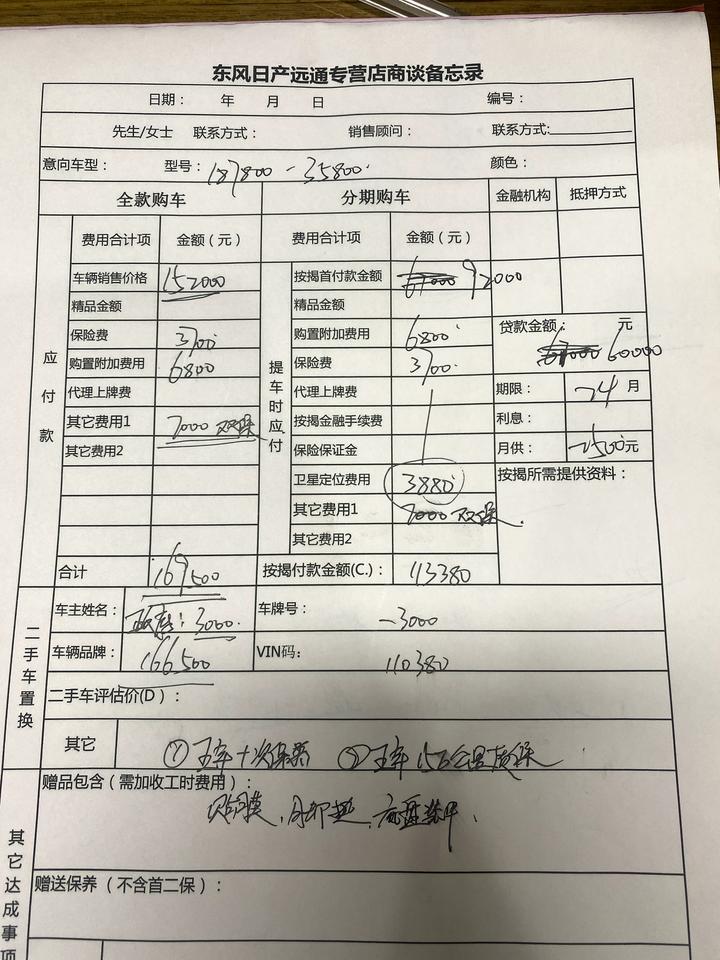 东风日产远通专营店商谈备忘录
日期： 年 月 日 编号：
先生/女士 联系方式： 销售顾问： 联系方式:
意向车型： 型号： 187800 - 35800 颜色：
全款购车 分期购车 金融机构 抵押方式
费用合计项 金额（元） 费用合计项 金额（元）
应付款 提车时应付
车辆销售价格 152000 按揭首付款金额 92000
精品金额 精品金额
保险费 3700 购置附加费用 6800 贷款金额： 元
60000
购置附加费用 6800 保险费 3700
代理上牌费 代理上牌费 期限： 24 月
其它费用1 7000 双保 按揭金融手续费 利息：
其它费用2 保险保证金 月供： 2500元
卫星定位费用 3880 按揭所需提供资料：
其它费用1 7000 双保
其它费用2
合计 169500 按揭付款金额(C.)： 113380
二手车置换
车主姓名： 3000 车牌号： -3000
车辆品牌： 166500 VIN码： 110380
二手车评估价(D)：
其它 ① 五年十次保养 ② 五年15万公里质保
其它达成事项
赠品包含（需加收工时费用）：
贴膜、脚垫、底盘装甲
赠送保养（不含首二保）：